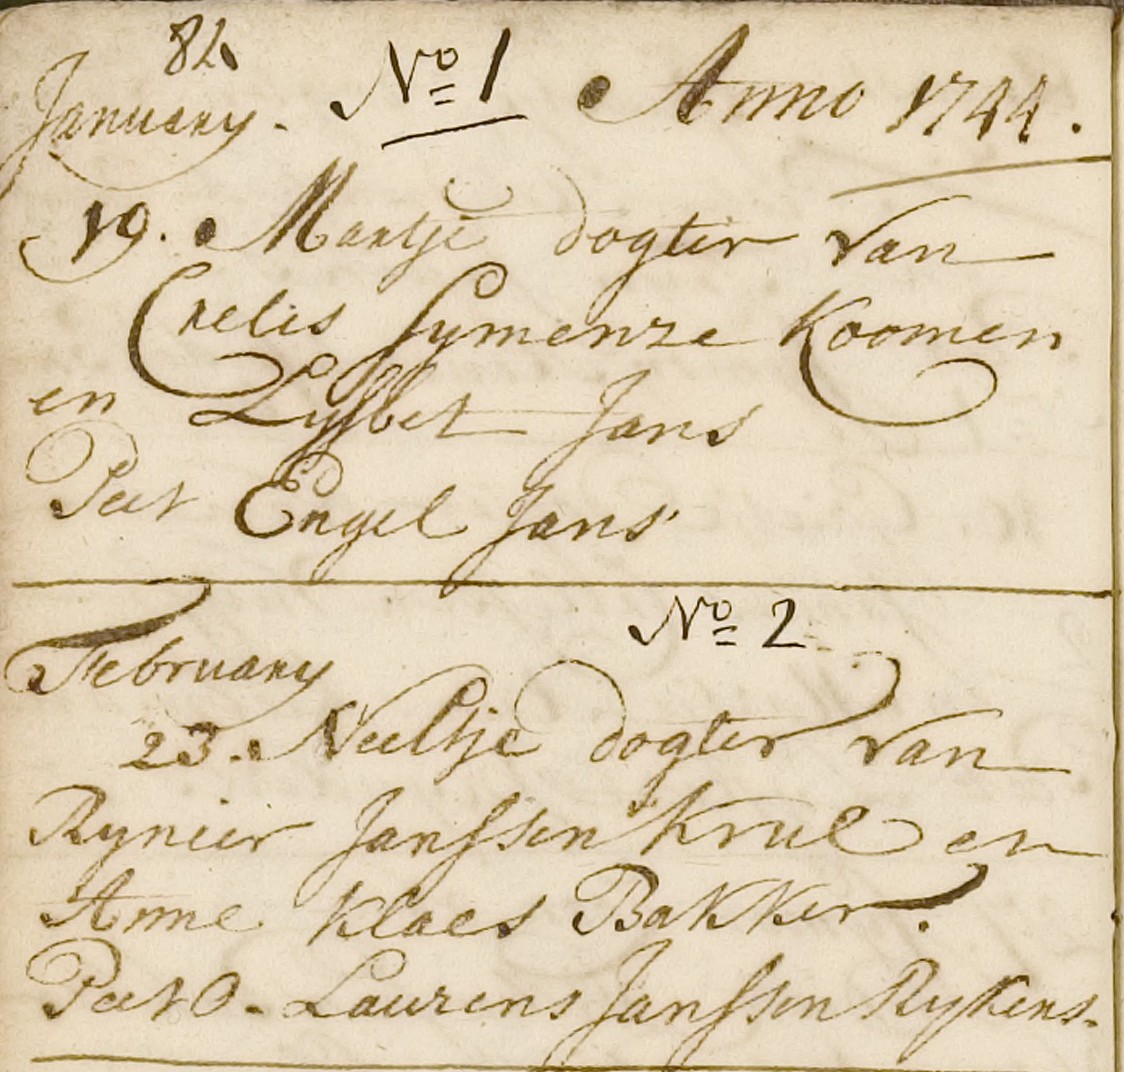 82
January. No 1 Anno 1744.
19. Martje dogter van
Crelis Symenze Koomen
en Lysbet Jans
Peet Engel Jans
No 2
February
23. Neeltje dogter van
Rynier Janssen Krul en
Anne Klaes Bakker.
Peet O. Laurens Janssen Rykens.